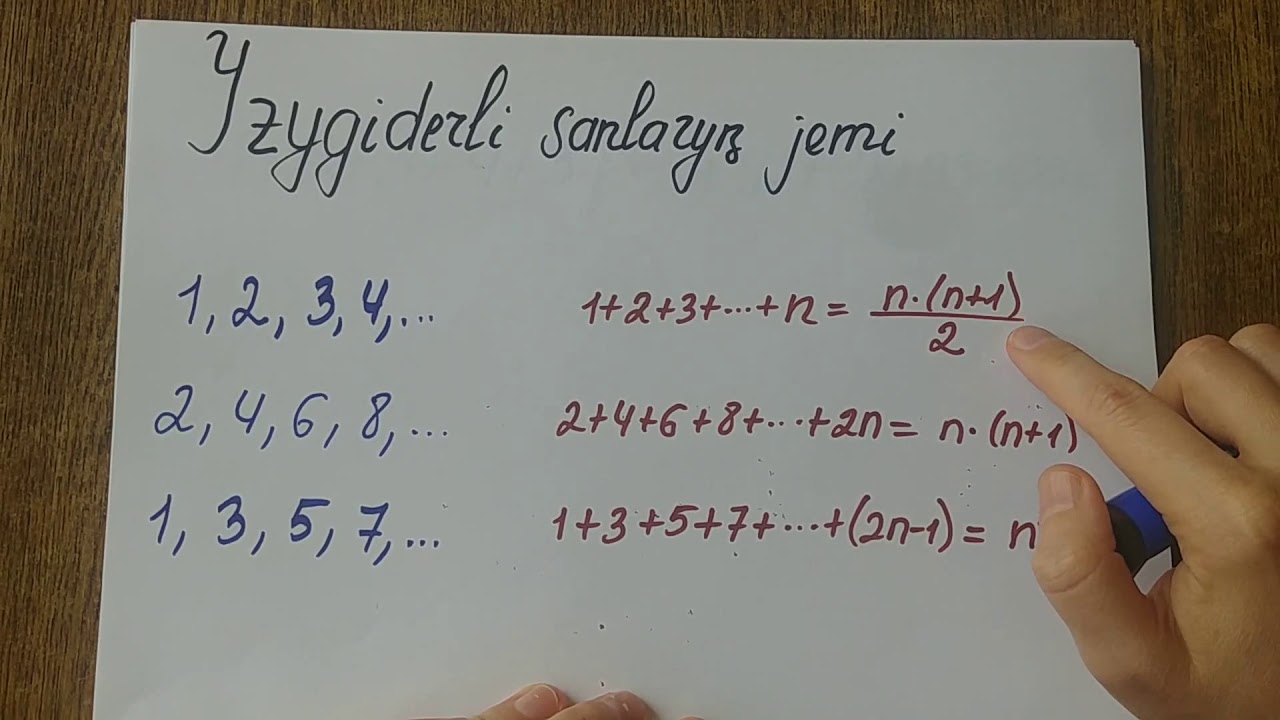 Yzygiderli sanlaryň jemi
1, 2, 3, 4, ... 1+2+3+...+n = n·(n+1)/2
2, 4, 6, 8, ... 2+4+6+8+...+2n = n·(n+1)
1, 3, 5, 7, ... 1+3+5+7+...+(2n-1) = n